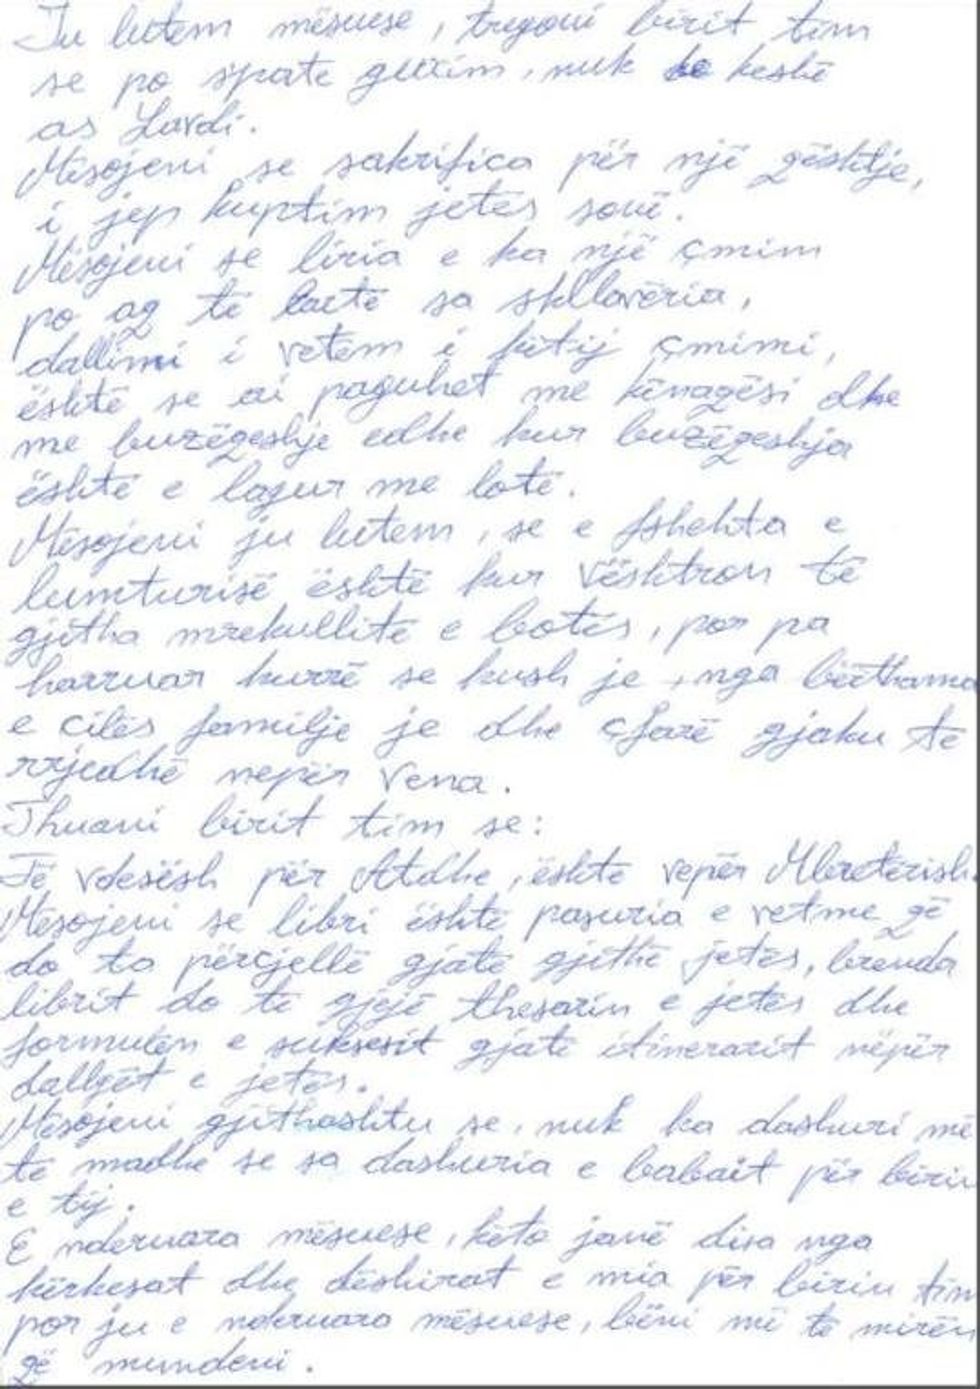 Ju lutem mësuese, tregoni birit tim
se po s'pate guxim, nuk ke keshë
as Lavdi.
Mësojeni se sakrifica për një qështje,
i jep kuptim jetës sonë.
Mësojeni se liria e ka një çmim
po aq të lartë sa skllavëria,
dallimi i vetem i këtij çmimi,
është se ai paguhet me kënaqësi dhe
me buzëqeshje edhe kur buzëqeshja
është e lagur me lotë.
Mësojeni ju lutem, se e fshehta e
lumturisë është kur vështron të
gjitha mrekullitë e botës, por pa
harruar kurrë se kush je, nga bërthama
e cilës familje je dhe çfarë gjaku të
rrjedhë nepër Vena.
Thuani birit tim se:
Të vdesësh për Atdhe, është vepër Mbretërish.
Mësojeni se libri është pasuria e vetme që
do ta përcjellë gjatë gjithë jetës, brenda
librit do të gjejë thesarin e jetës dhe
formulën e suksesit gjatë itinerarit nëpër
dallgët e jetës.
Mësojeni gjithashtu se, nuk ka dashuri më
të madhe se sa dashuria e babait për birin
e tij.
E nderuara mësuese, këto janë disa nga
kërkesat dhe dëshirat e mia për birin tim
por ju e nderuara mësuese, bëni më të mirën
që mundeni.